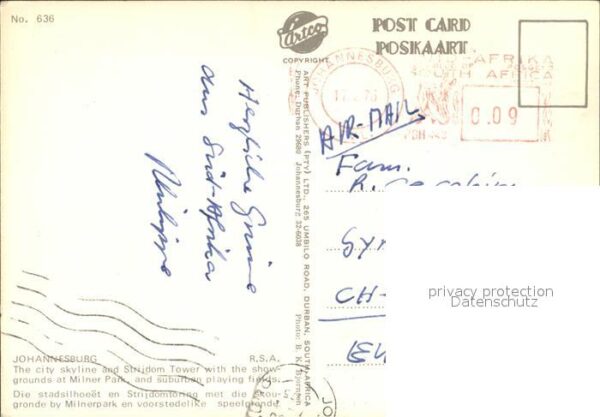 No. 636
Artco
COPYRIGHT
POST CARD
POSKAART
JOHANNESBURG
AFRIKA
SOUTH AFRICA
0.09
AIR-MAIL
Fam.
R.
CH-
Herzliche Grüsse
aus Süd-Afrika
Philippe
ART PUBLISHERS (PTY) LTD., 265 UMBILO ROAD, DURBAN, SOUTH AFRICA
Phone: Durban 29680 Johannesburg 32-6038
Photo: B. K. Bjornsen
privacy protection
Datenschutz
JOHANNESBURG R.S.A.
The city skyline and Strijdom Tower with the show-
grounds at Milner Park, and suburban playing fields.
Die stadsilhoeët en Strijdomtoring met die skou-
gronde by Milnerpark en voorstedelike speelgronde.